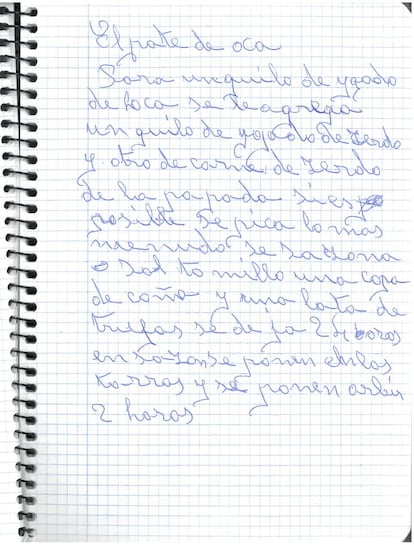 El pate de oca
Para un quilo de ygado
de hoca se le agrega
un quilo de ygado de zerdo
y otro de carne de zerdo
de la papada si es
posible Se pica lo mas
menudo se sazona
sal tomillo una copa
de coña y una lata de
trufas se deja 24 oras
en sazon se ponen en los
tarros y se ponen a rbir
2 horas